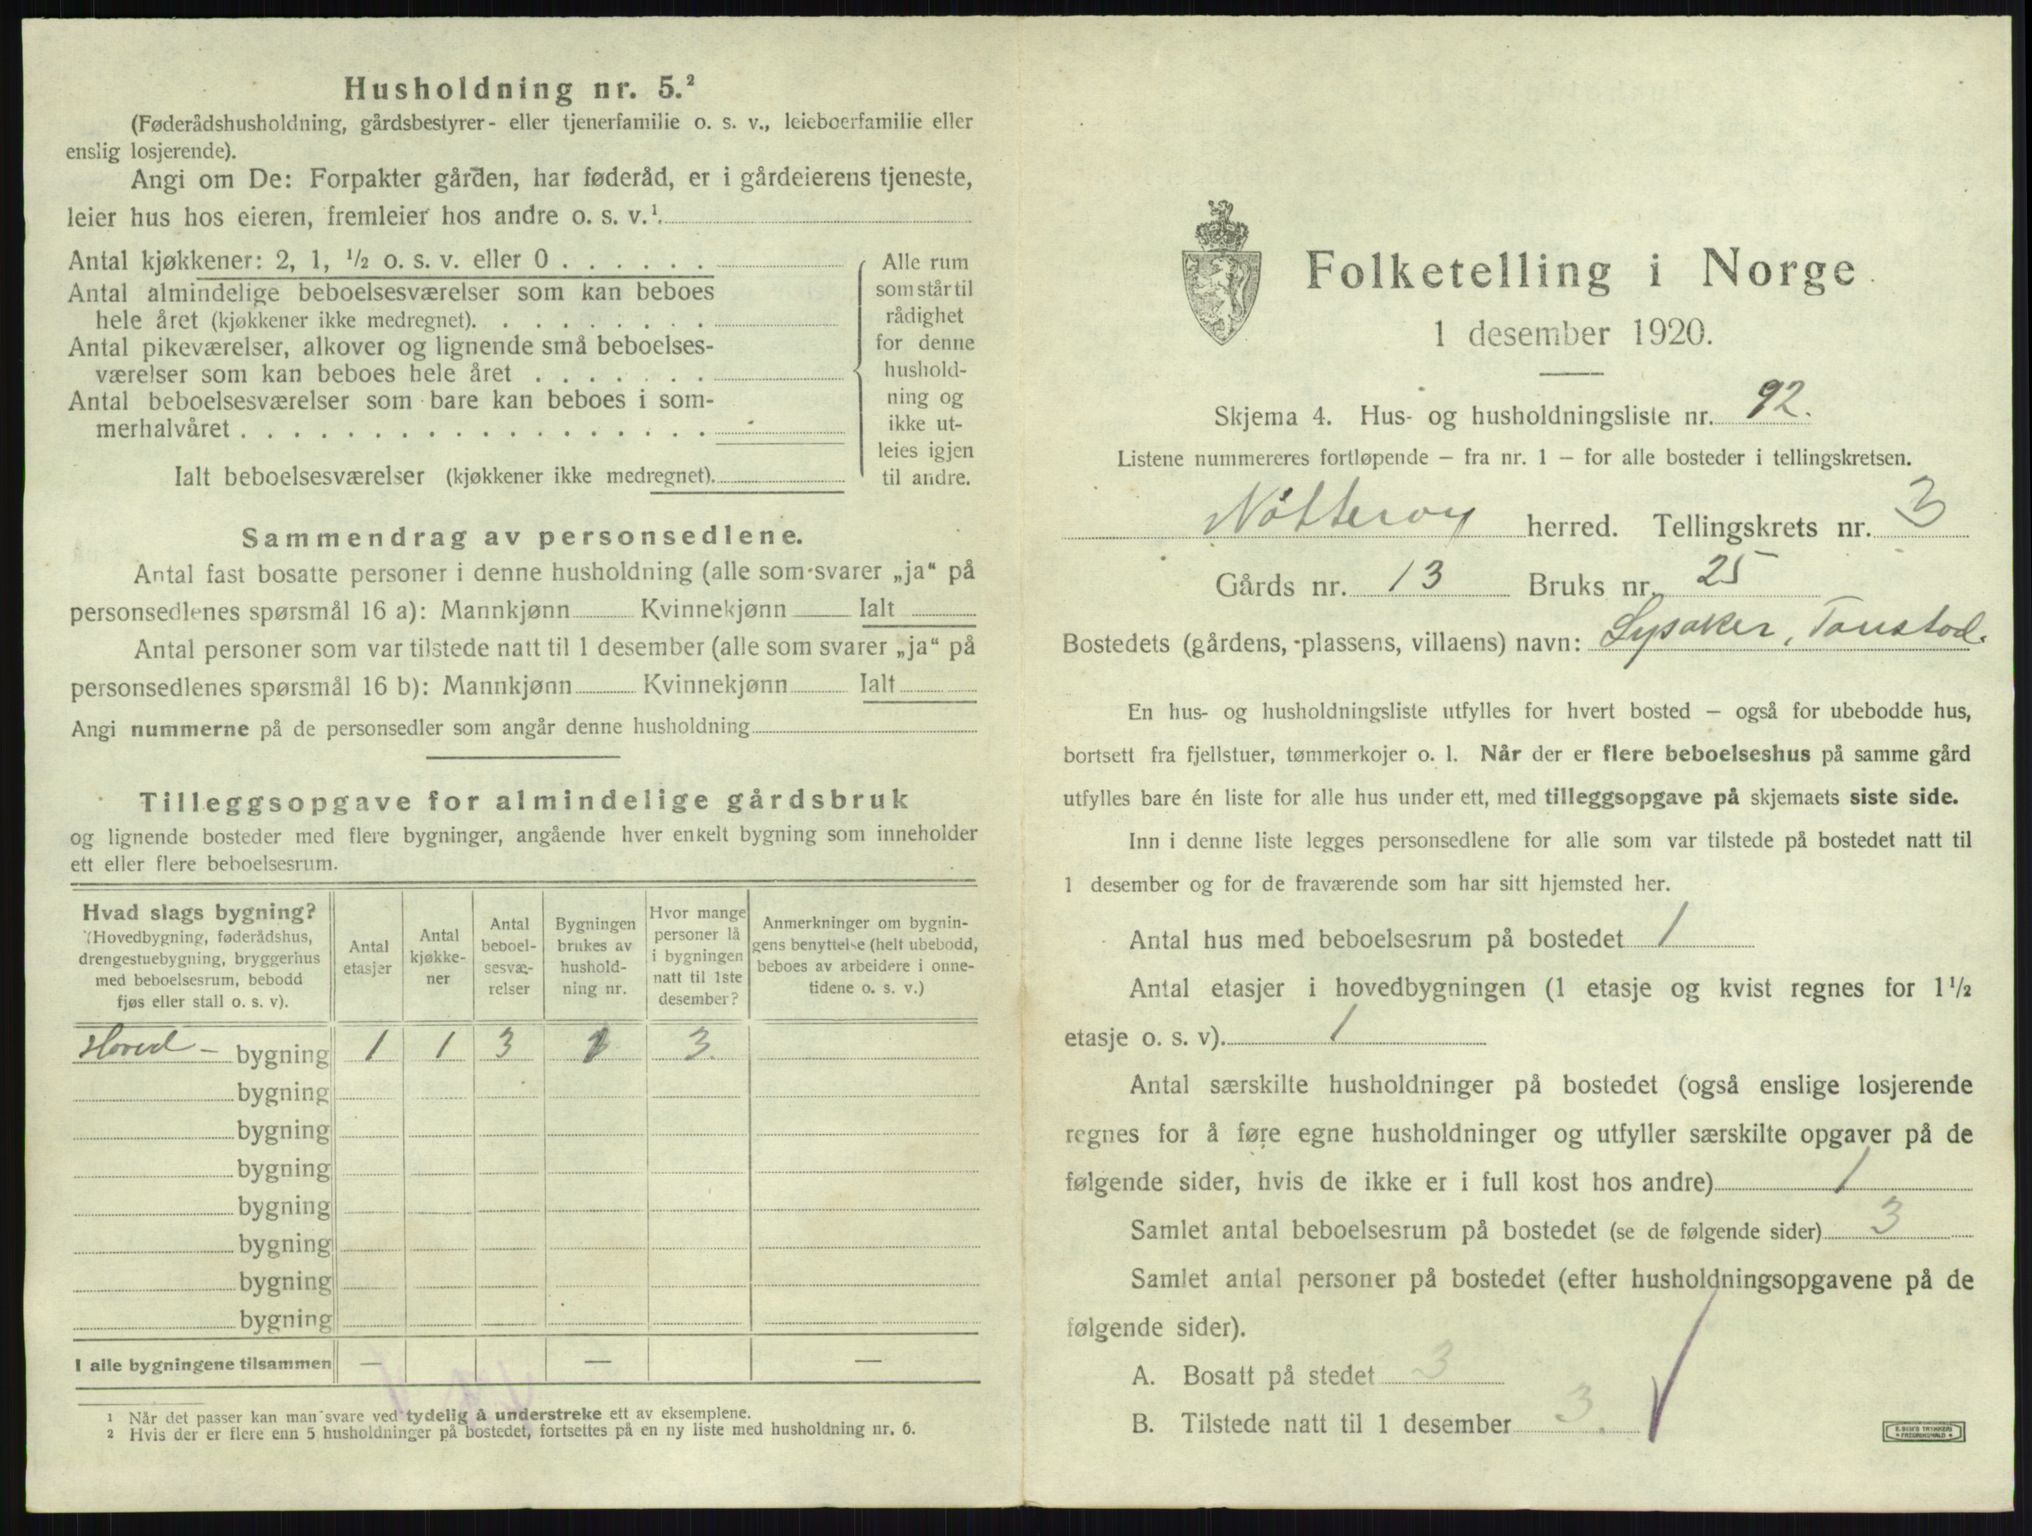 Husholdning nr. 5.²
(Føderådshusholdning, gårdsbestyrer- eller tjenerfamilie o. s. v., leieboerfamilie eller
enslig losjerende).
Angi om De: Forpakter gården, har føderåd, er i gårdeierens tjeneste,
leier hus hos eieren, fremleier hos andre o. s. v.¹
Antal kjøkkener: 2, 1, ½ o. s. v. eller 0 . . . . . .
Antal almindelige beboelsesværelser som kan beboes
hele året (kjøkkener ikke medregnet). . . . . . . . .
Antal pikeværelser, alkover og lignende små beboelses-
værelser som kan beboes hele året . . . . . . .
Antal beboelsesværelser som bare kan beboes i som-
merhalvåret . . . . . . . . . . . . . . . . . .
Ialt beboelsesværelser (kjøkkener ikke medregnet).
Alle rum
som står til
rådighet
for denne
hushold-
ning og
ikke ut-
leies igjen
til andre.
Sammendrag av personsedlene.
Antal fast bosatte personer i denne husholdning (alle som svarer „ja“ på
personsedlenes spørsmål 16 a): Mannkjønn Kvinnekjønn Ialt
Antal personer som var tilstede natt til 1 desember (alle som svarer „ja“ på
personsedlenes spørsmål 16 b): Mannkjønn Kvinnekjønn Ialt
Angi nummerne på de personsedler som angår denne husholdning
Tilleggsopgave for almindelige gårdsbruk
og lignende bosteder med flere bygninger, angående hver enkelt bygning som inneholder
ett eller flere beboelsesrum.
Hvad slags bygning?
(Hovedbygning, føderådshus,
drengestuebygning, bryggerhus
med beboelsesrum, bebodd
fjøs eller stall o. s. v).
Antal
etasjer
Antal
kjøkke-
ner
Antal
beboel-
sesvæ-
relser
Bygningen
brukes av
hushold-
ning nr.
Hvor mange
personer lå
i bygningen
natt til 1ste
desember?
Anmerkninger om bygnin-
gens benyttelse (helt ubebodd,
beboes av arbeidere i onne-
tidene o. s. v.)
Hoved- bygning 1 1 3 1 3
bygning
bygning
bygning
bygning
bygning
bygning
bygning
I alle bygningene tilsammen — — —
¹ Når det passer kan man svare ved tydelig å understreke ett av eksemplene.
² Hvis der er flere enn 5 husholdninger på bostedet, fortsettes på en ny liste med husholdning nr. 6.
Folketelling i Norge
1 desember 1920.
Skjema 4. Hus- og husholdningsliste nr. 92.
Listene nummereres fortløpende – fra nr. 1 – for alle bosteder i tellingskretsen.
Nøtterøy herred. Tellingskrets nr. 3
Gårds nr. 13 Bruks nr. 25
Bostedets (gårdens, -plassens, villaens) navn: Lysaker,
En hus- og husholdningsliste utfylles for hvert bosted – også for ubebodde hus,
bortsett fra fjellstuer, tømmerkojer o. l. Når der er flere beboelseshus på samme gård
utfylles bare én liste for alle hus under ett, med tilleggsopgave på skjemaets siste side.
Inn i denne liste legges personsedlene for alle som var tilstede på bostedet natt til
1 desember og for de fraværende som har sitt hjemsted her.
Antal hus med beboelsesrum på bostedet 1
Antal etasjer i hovedbygningen (1 etasje og kvist regnes for 1½
etasje o. s. v). 1
Antal særskilte husholdninger på bostedet (også enslige losjerende
regnes for å føre egne husholdninger og utfyller særskilte opgaver på de
følgende sider, hvis de ikke er i full kost hos andre) 1
Samlet antal beboelsesrum på bostedet (se de følgende sider) 3
Samlet antal personer på bostedet (efter husholdningsopgavene på de
følgende sider).
A. Bosatt på stedet 3
B. Tilstede natt til 1 desember 3.